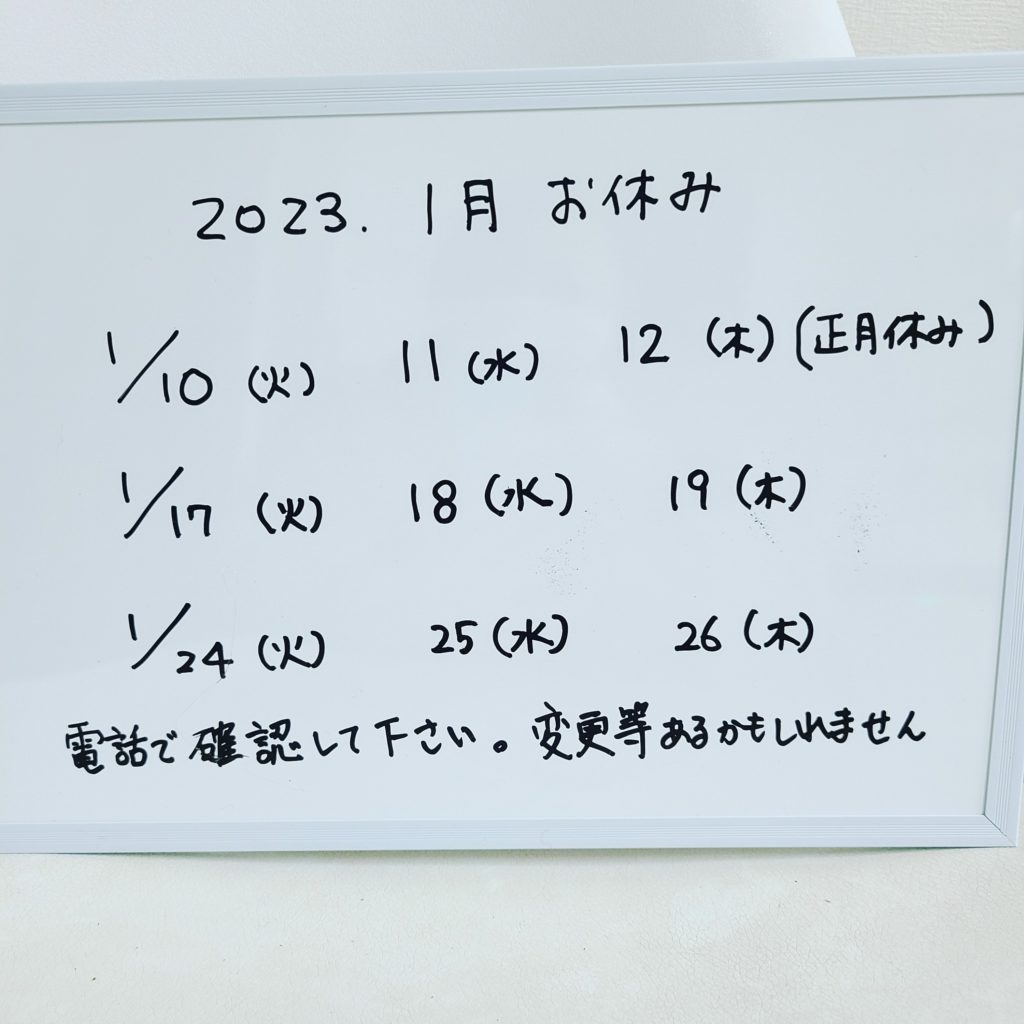 2023. 1月 お休み
1/10 (火) 11 (水) 12 (木) (正月休み)
1/17 (火) 18 (水) 19 (木)
1/24 (火) 25 (水) 26 (木)
電話で確認して下さい。変更等あるかもしれません